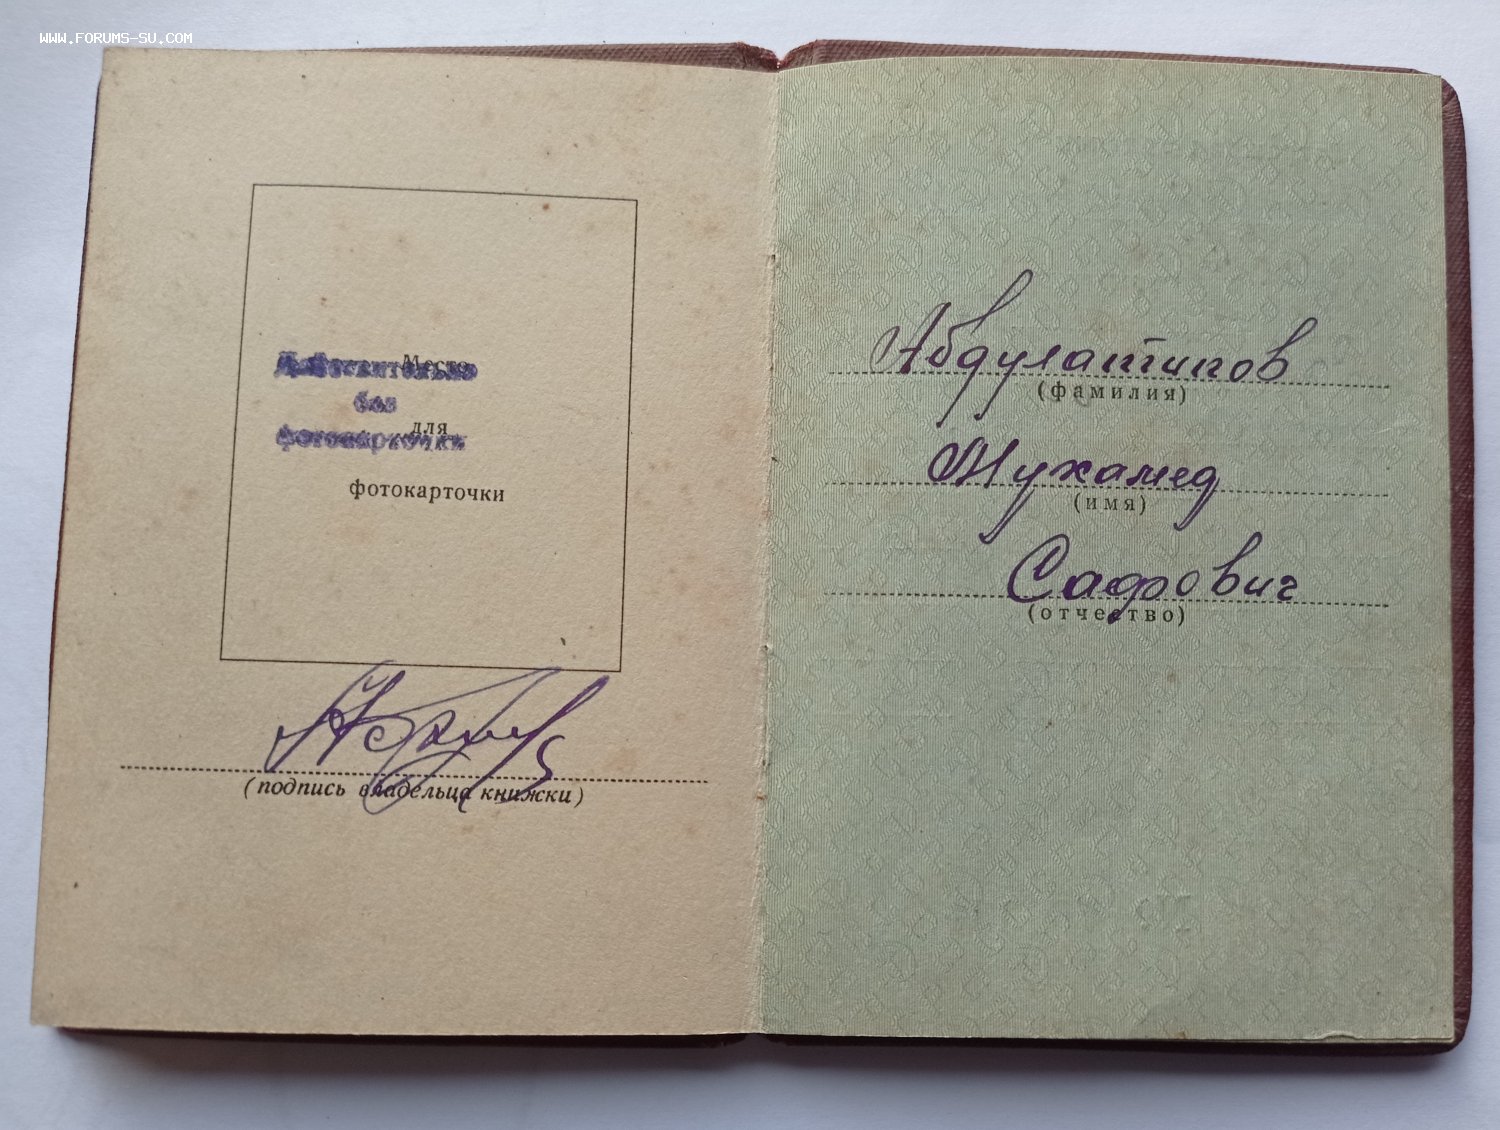 WWW.FORUMS-SU.COM
Место
Действительно
без
для
фотокарточки
фотокарточки
(подпись владельца книжки)
Абдулатипов
(фамилия)
Мухамед
(имя)
Сафович
(отчество)